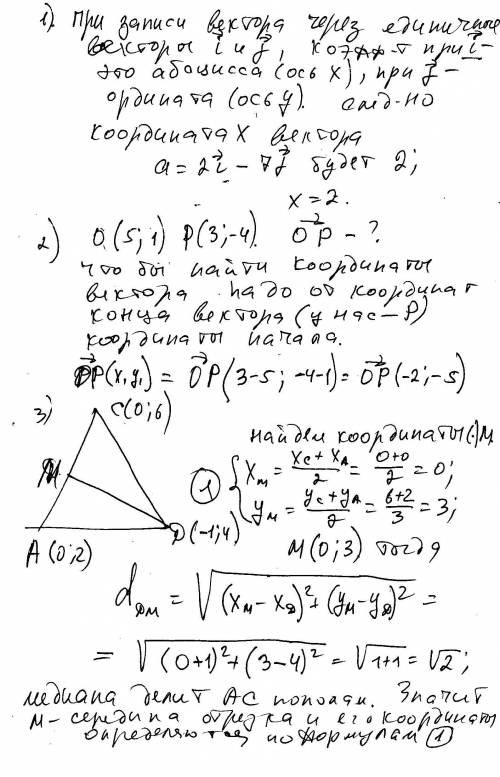 1). При записи вектора через единичные
векторы i⃗ и j⃗, коэфф-т при i⃗ -
это абсцисса (ось x), при j⃗ -
ордината (ось y). след-но
координата x вектора
a = 2i⃗ - 7j⃗ будет 2;
x = 2.
2) O(5; 1) P(3; -4). O⃗P - ?
что бы найти координаты
вектора надо от координат
конца вектора (у нас - P)
координаты начала.
O⃗P(x, y,) = O⃗P(3-5; -4-1) = O⃗P(-2; -5)
3) C(0; 6)
найдем координаты (·) M.
M
① { Xм = (Xc + XA)/2 = (0+0)/2 = 0;
yм = (yc + yA)/2 = (6+2)/3 = 3;
A(0; 2) D(-1; 4)
M(0; 3) тогда
dDM = √((XM - XD)² + (yM - yD)²) =
= √((0+1)² + (3-4)²) = √1+1 = √2;
медиана делит AC пополам. Значит
M - середина отрезка и его координаты
определяются по формулам ①